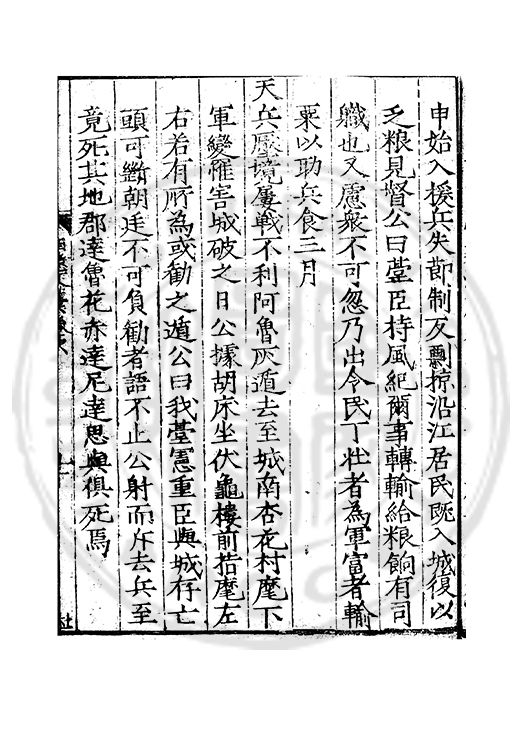 申始入援兵失節制反剽掠沿江居民既入城復以
乏粮見督公曰臺臣持風紀爾事轉輸給粮餉有司
職也又慮衆不可忽乃出令民丁壯者為軍富者輸
粟以助兵食三月
天兵壓境屢戰不利阿魯灰遁去至城南杏花村麾下
軍變惟害城破之日公據胡床坐伏龜樓前指麾左
右若有所為或勸之遁公曰我臺憲重臣與城存亡
頭可斷朝廷不可負勸者語不止公射而斥去兵至
竟死其地郡達魯花赤達尼達思與俱死焉